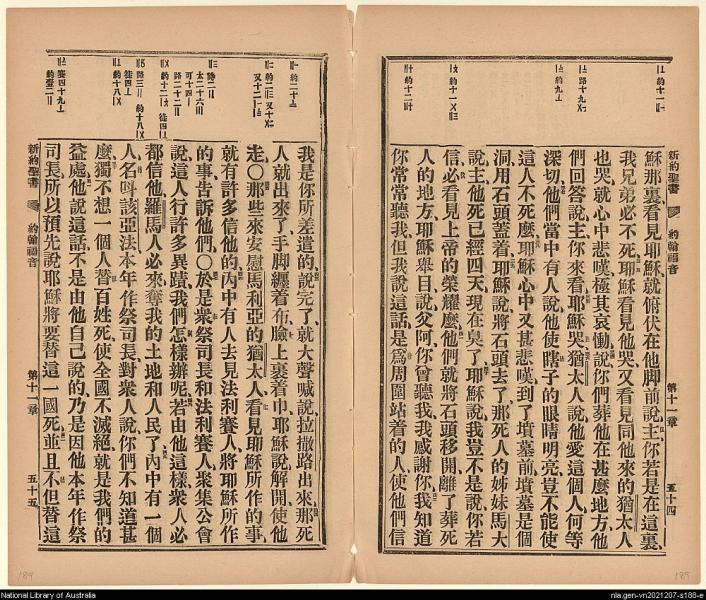 新約聖書 約翰福音 第十一章 五十四
穌那裏看見耶穌就俯伏在他脚前說主你若是在這裏
我兄弟必不死耶穌看見他哭又看見同他來的猶太人
也哭就心中悲嘆極其哀慟說你們葬他在甚麼地方他
們回答說主你來看耶穌哭猶太人說他愛這個人何等
深切他們當中有人說他使瞎子的眼睛明亮豈不能使
這人不死麼耶穌心中又甚悲嘆到了墳墓前墳墓是個
洞用石頭蓋着耶穌說將石頭去了那死人的姊妹馬大
說主他死已經四天現在臭了耶穌說我豈不是說你若
信必看見上帝的榮耀麼他們就將石頭移開離了葬死
人的地方耶穌舉目說父阿你曾聽我我感謝你我知道
你常常聽我但我說這話是爲周圍站着的人使他們信
我是你所差遣的說完了就大聲喊說拉撒路出來那死
人就出來了手脚纏着布臉上裹着巾耶穌說解開使他
走○那些來安慰馬利亞的猶太人看見耶穌所作的事
就有許多信他的內中有人去見法利賽人將耶穌所作
的事告訴他們○於是衆祭司長和法利賽人聚集公會
說這人行許多異蹟我們怎樣辦呢若由他這樣衆人必
都信他羅馬人必來奪我的土地和人民了內中有一個
人名呌該亞法本年作祭司長對衆人說你們不知道甚
麼獨不想一個人替百姓死使全國不滅絕就是我們的
益處他說這話不是由他自己說的乃是因他本年作祭
司長所以預先說耶穌將要替這一國死並且不但替這
新約聖書 約翰福音 第十一章 五十五
189
189
National Library of Australia
nla.gen-vn2021207-s188-e